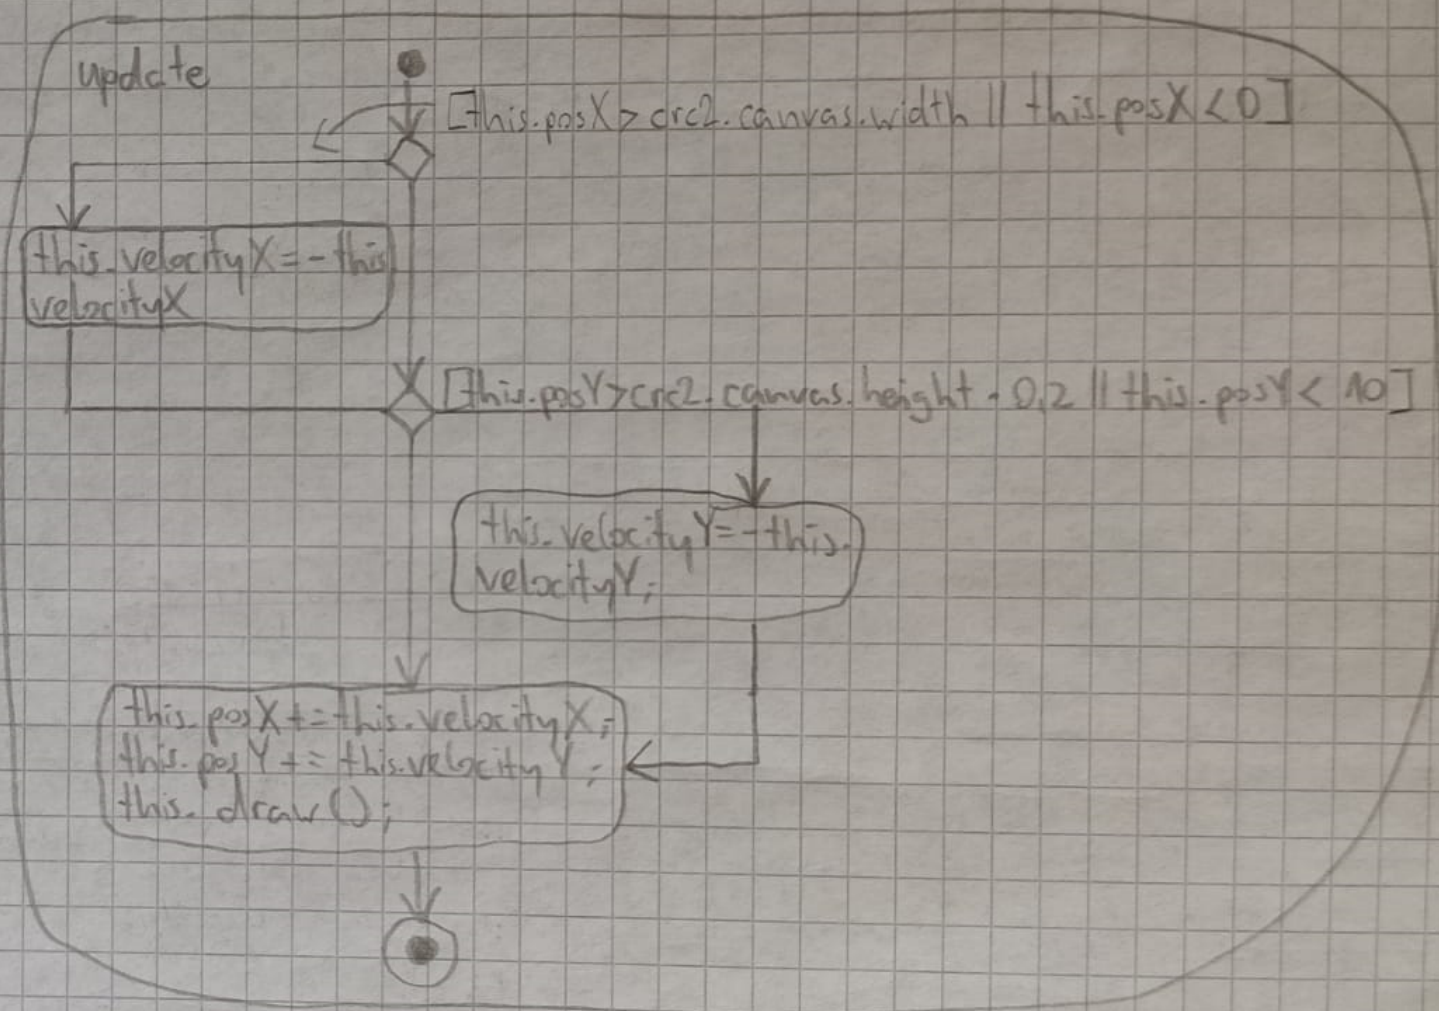 update
[this.posX > crc2.canvas.width || this.posX < 0]
this.velocityX = - this
velocityX
[this.posY > crc2.canvas.height - 0,2 || this.posY < 10]
this.velocityY = - this.
velocityY;
this.posX += this.velocityX;
this.posY += this.velocityY;
this.draw();